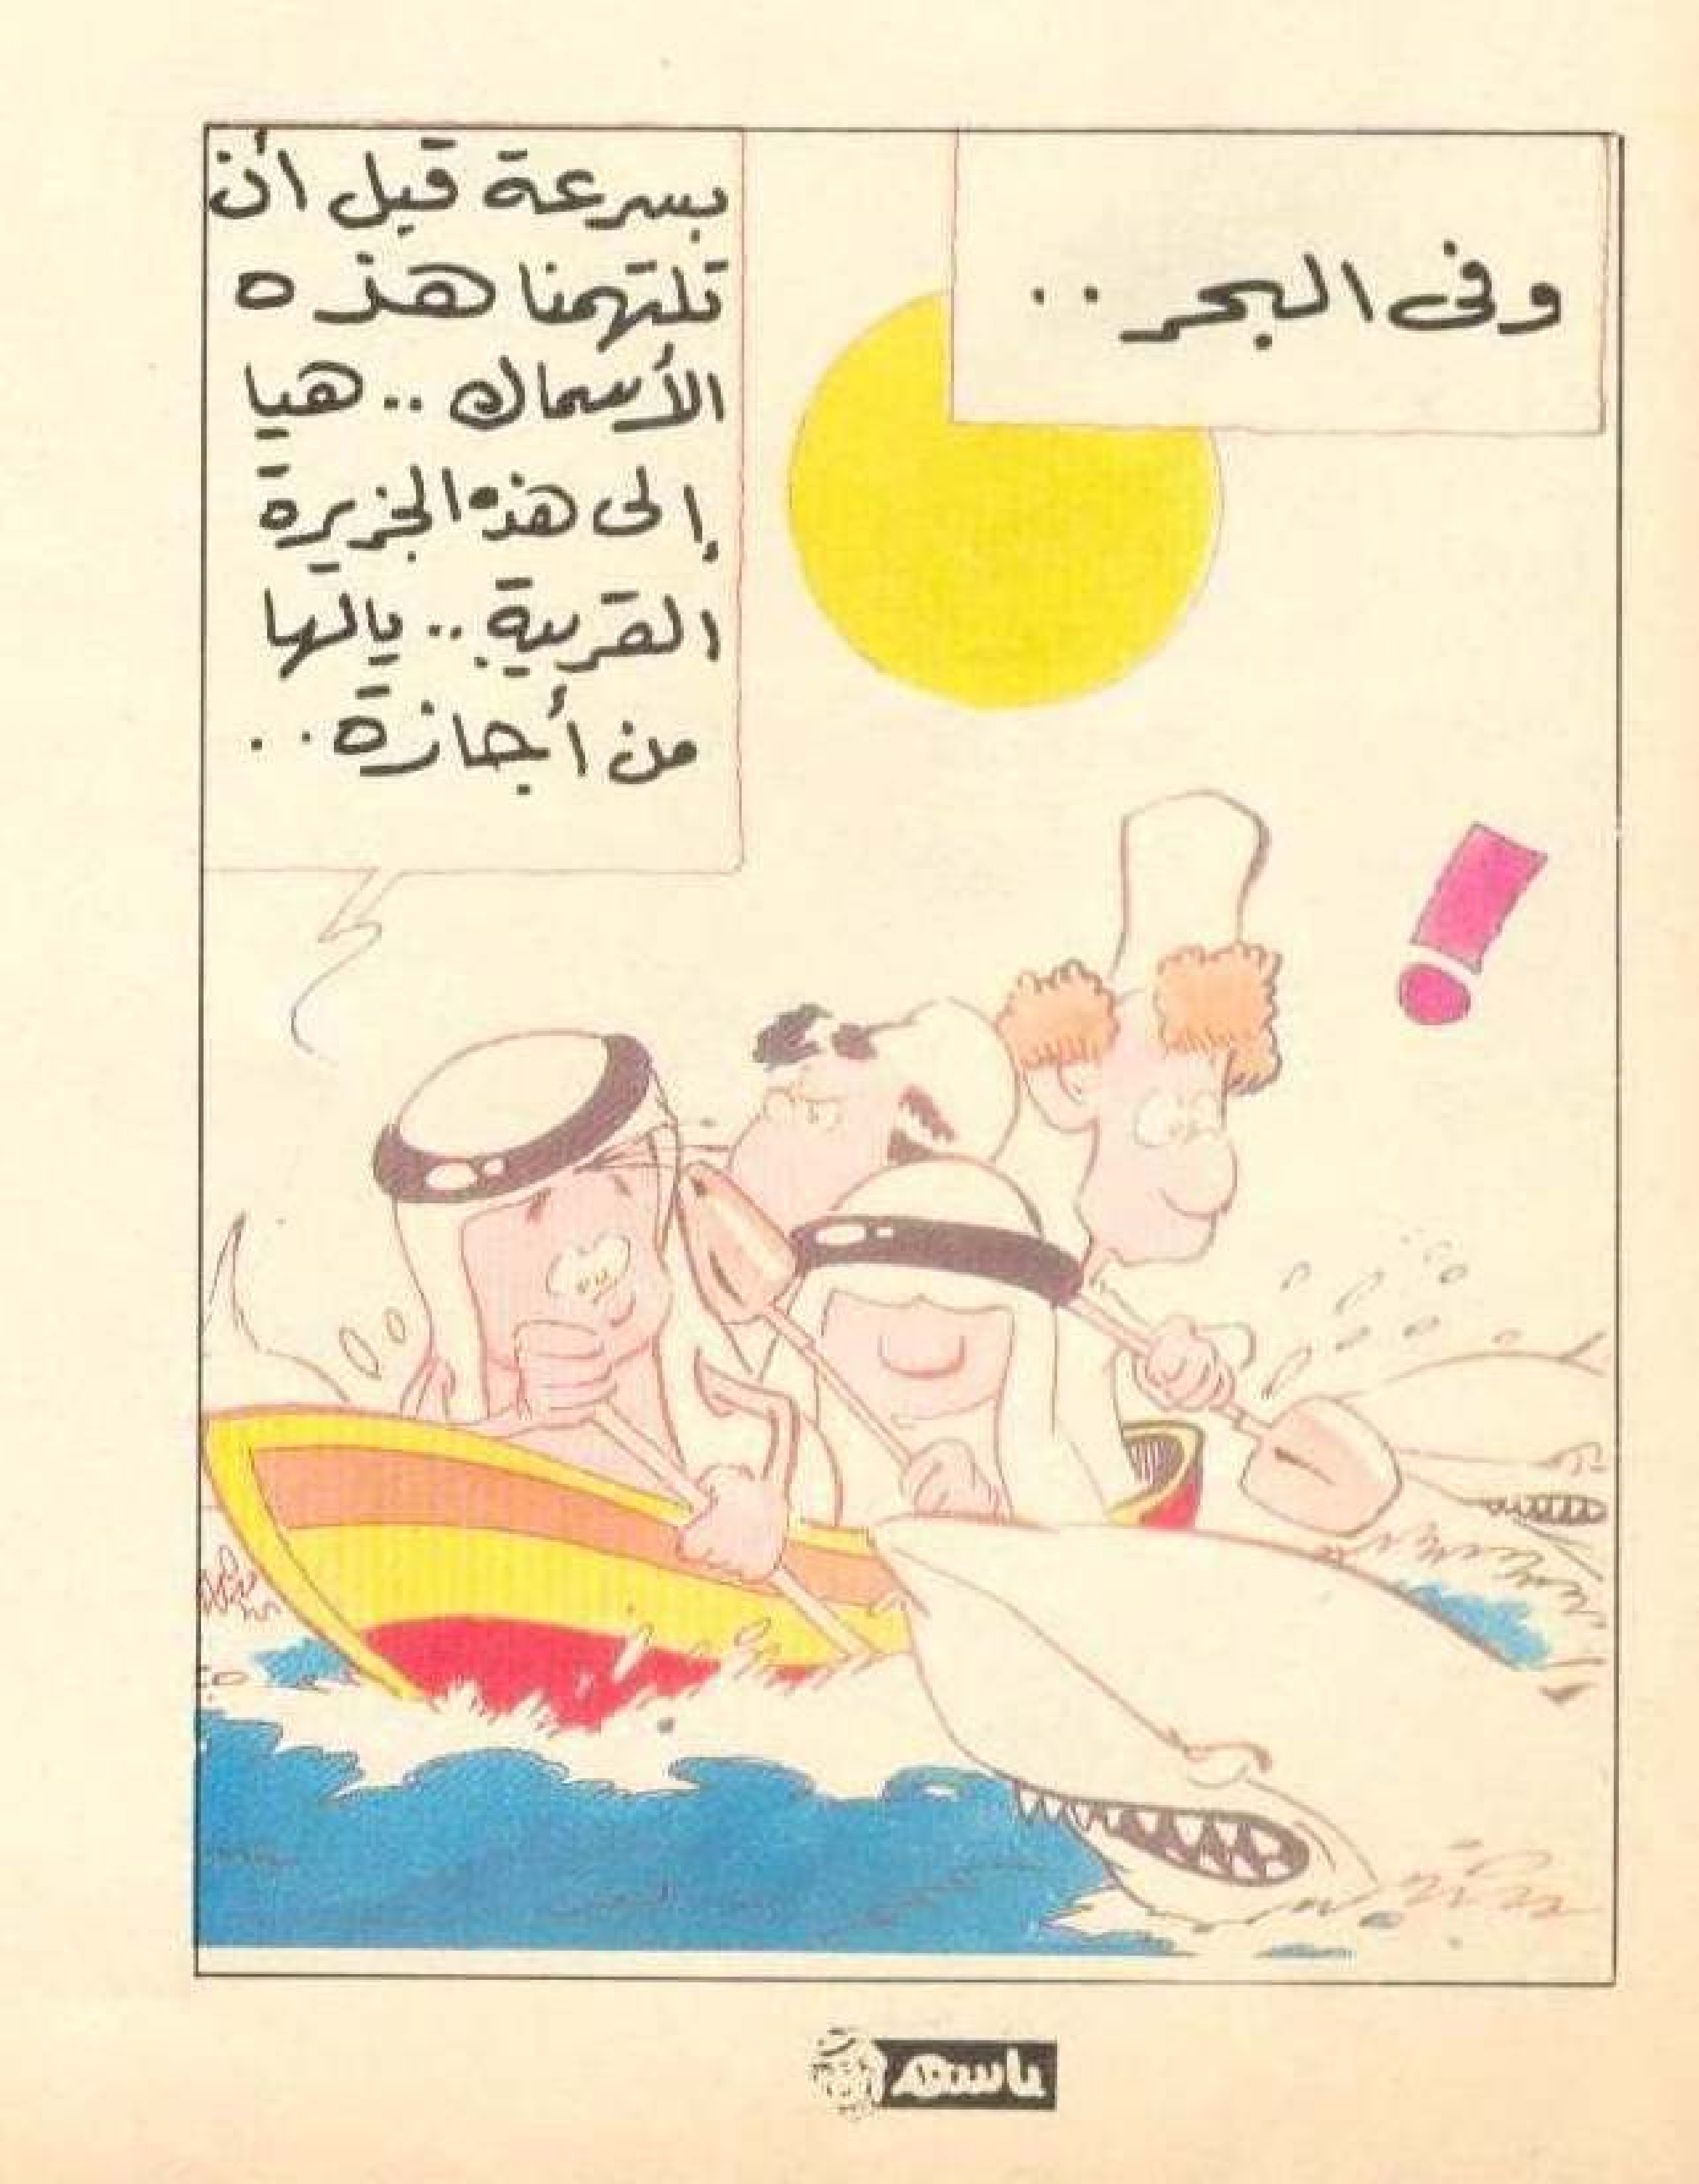 وفى البحر ..
بسرعة قبل أن
تلتهمنا هذه
الأسماك .. هيا
إلى هذه الجزيرة
القريبة .. يالها
من أجازة ..
باسم